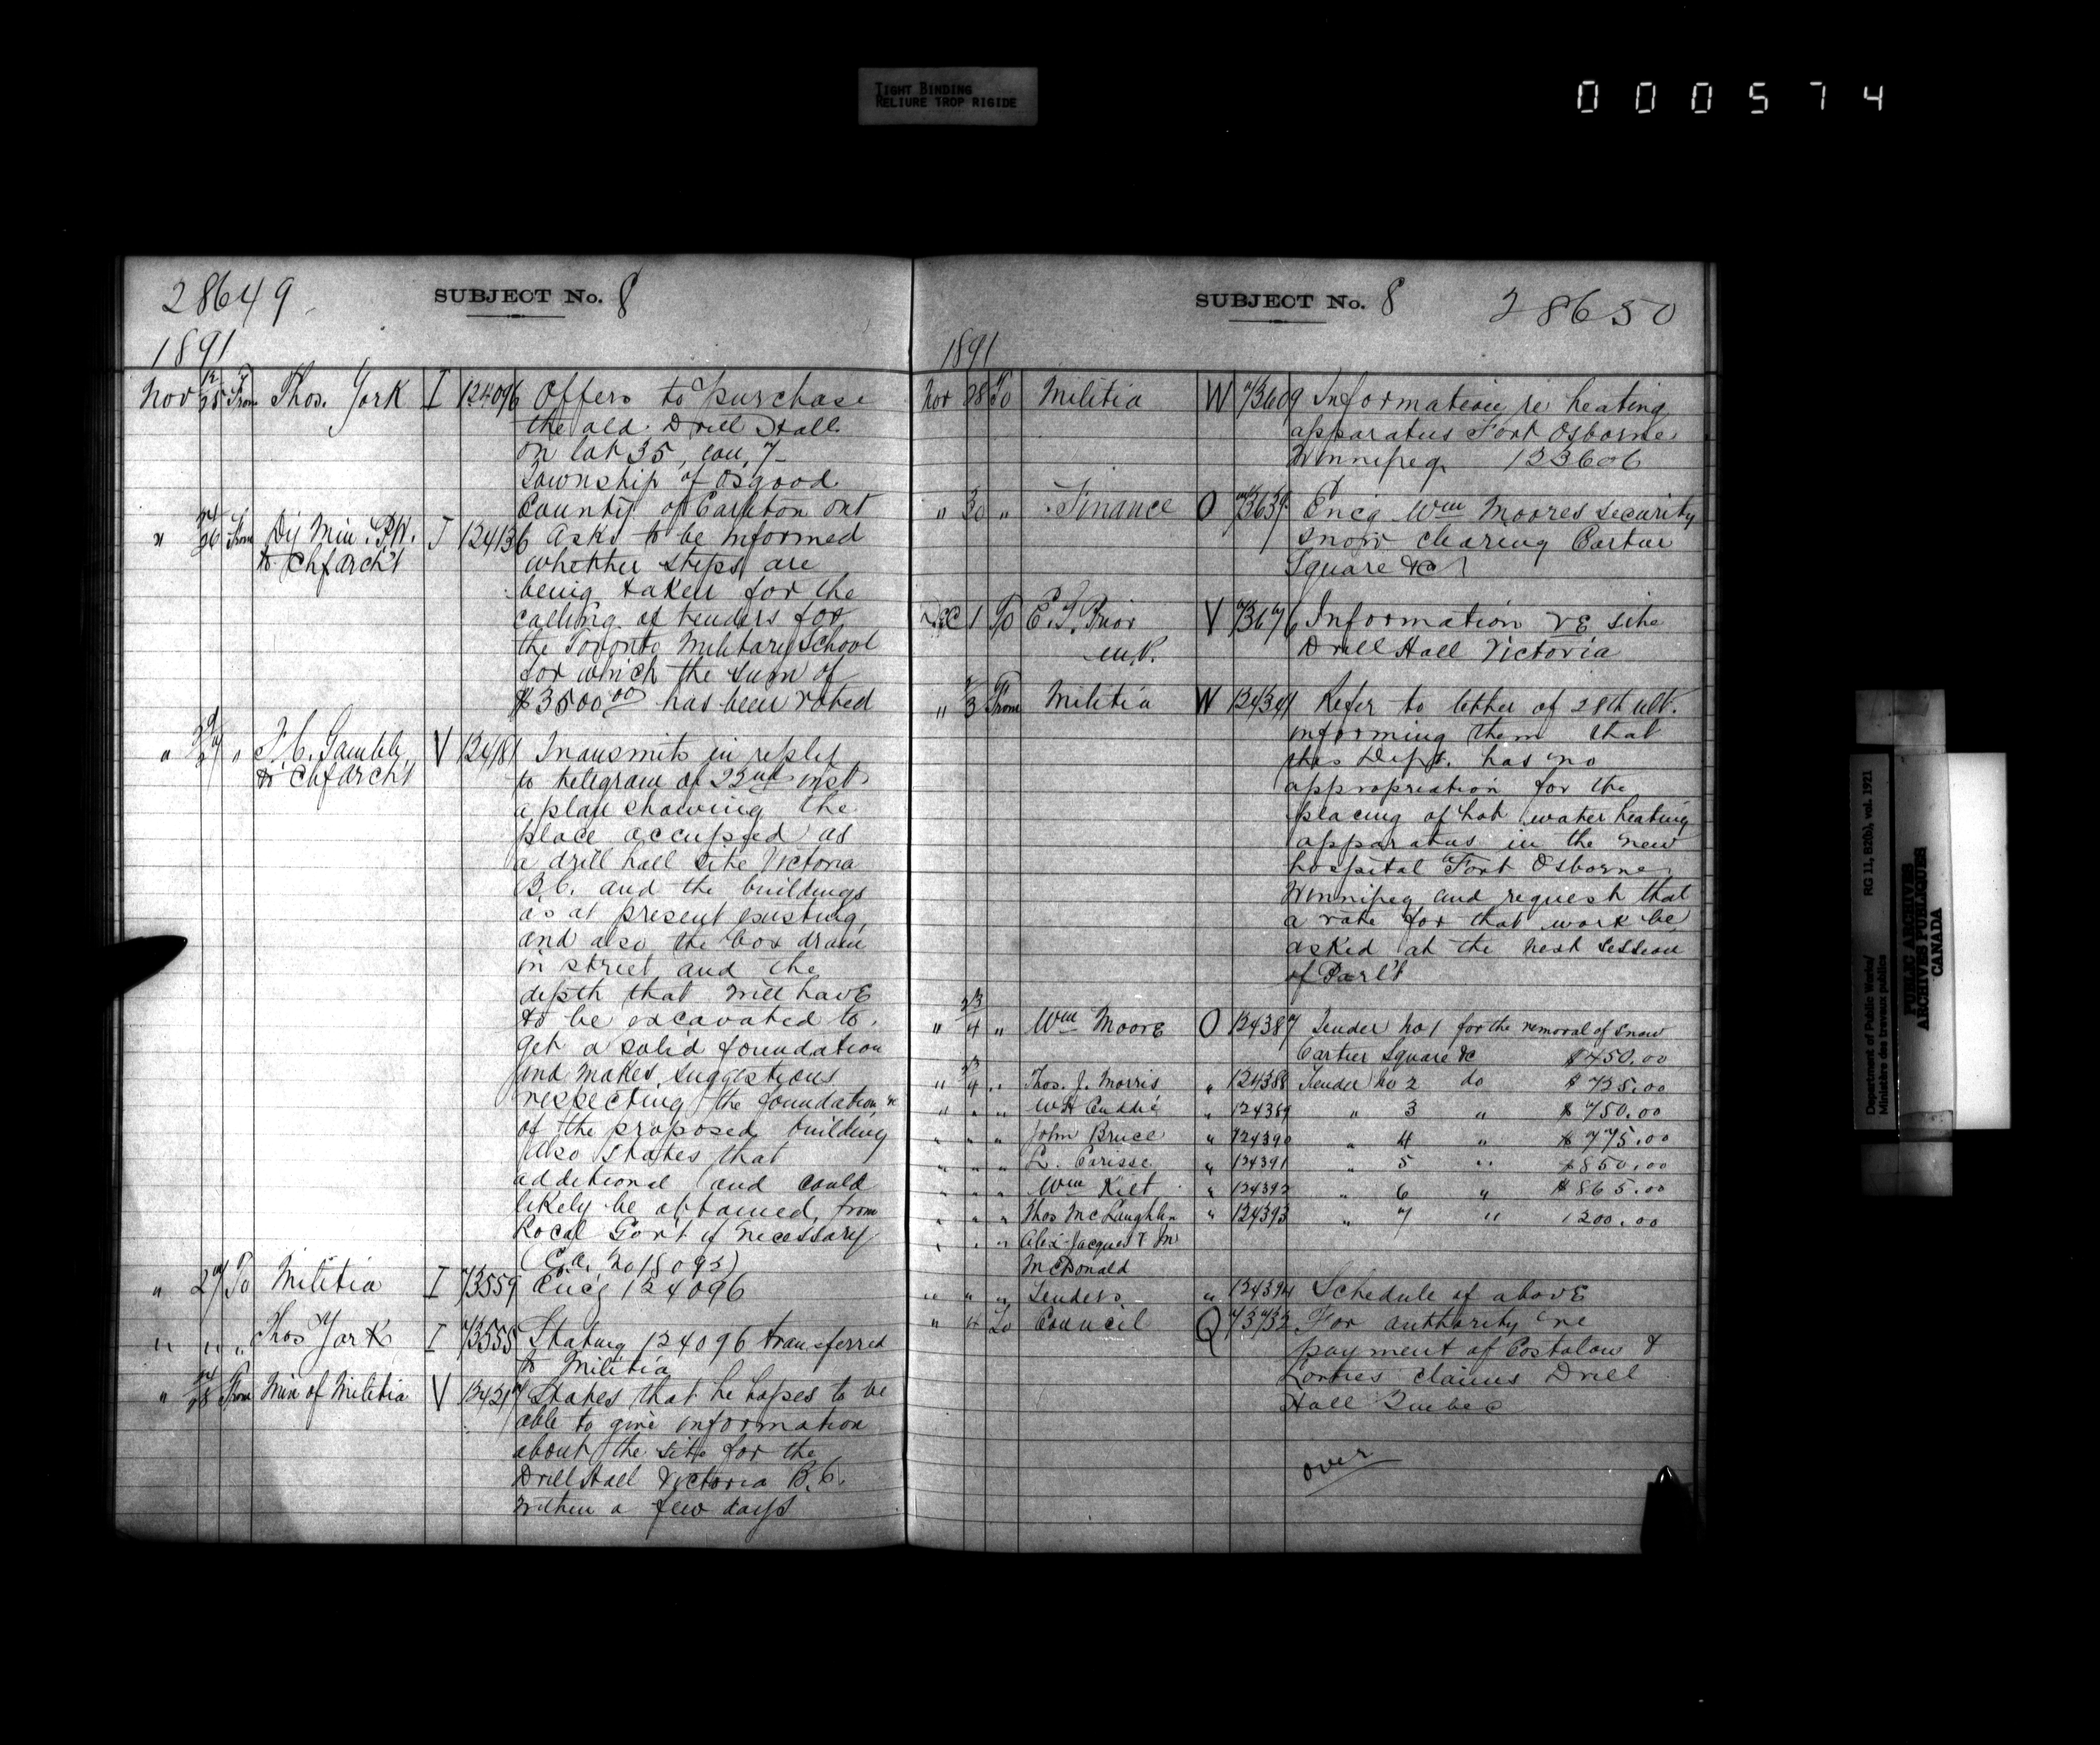 TIGHT BINDING
RELIURE TROP RIGIDE
000574
28649
SUBJECT No. 8
1891
Nov 25 From Thos. York I 124096 Offers to purchase
the old Drill Hall
on lot 35, con, 7
Township of Osgood
County of Carleton Ont
" 26 From Dy Min. P.W. J 124136 Asks to be informed
to Chf Arch't whether steps are
being taken for the
calling of tenders for
the Toronto Military School
for which the sum of
$3500.00 has been voted
" 27 " F.C. Gamble, V 124181 Transmits in reply
to Chf Arch't to telegram of 22nd inst
a plan showing the
place occupied as
a drill hall site Victoria
B.C. and the buildings
as at present existing,
and also the box drain
in street and the
depth that will have
to be excavated to
get a solid foundation
and makes suggestions
respecting the foundation
of the proposed building
Also states that
additional land could
likely be obtained from
Local Gov't if necessary
(C.A. No 18092)
" 27 To Militia I 73559 Enc'g 124096
" " " Thos York I 73558 Stating 124096 transferred
to Militia
" 28 From Min of Militia V 124217 States that he hopes to be
able to give information
about the site for the
Drill Hall Victoria B.C.
within a few days
SUBJECT No. 8
28650
1891
Nov 28 To Militia W 73609 Information re heating
apparatus Fort Osborne
Winnipeg 123606
" 30 " Finance O 73639 Encg Wm Moores security
snow clearing Cartier
Square &c
Dec 1 To E.G. Prior V 73676 Information re site
M.P. Drill Hall Victoria
" 3 From Militia W 124341 Refer to letter of 28th ult.
informing them that
this Dept. has no
appropriation for the
placing of hot water heating
apparatus in the new
hospital Fort Osborne
Winnipeg and request that
a vote for that work be
asked at the next session
of Parl't
" 4 " Wm Moore O 124387 Tender No 1 for the removal of snow
Cartier Square &c $450.00
" 4 " Thos. J. Morris " 124388 Tender No 2 do $725.00
" " " WH " 124389 " 3 " $750.00
" " " John Bruce " 124390 " 4 " $775.00
" " " L. Carisse " 124391 " 5 " $850.00
" " " Wm Kilt " 124392 " 6 " $865.00
" " " Thos McLaughlin " 124393 " 7 " 1200.00
" " " Alex Jacques & M
McDonald
" " " Tenders " 124394 Schedule of above
" 4 To Council Q 73732 For authority re
payment of Costolow &
Lorties claims Drill
Hall Quebec
over
Department of Public Works/ RG 11, B2(b), vol. 1921
Ministère des travaux publics
PUBLIC ARCHIVES
ARCHIVES PUBLIQUES
CANADA